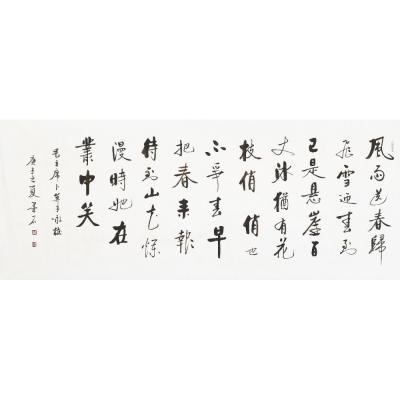 風雨送春歸
飛雪迎春到
已是懸崖百
丈冰猶有花
枝俏俏也
不爭春早
把春来報
待到山花爛
漫時她在
叢中笑
毛主席卜算子詠梅
庚子之夏墨石